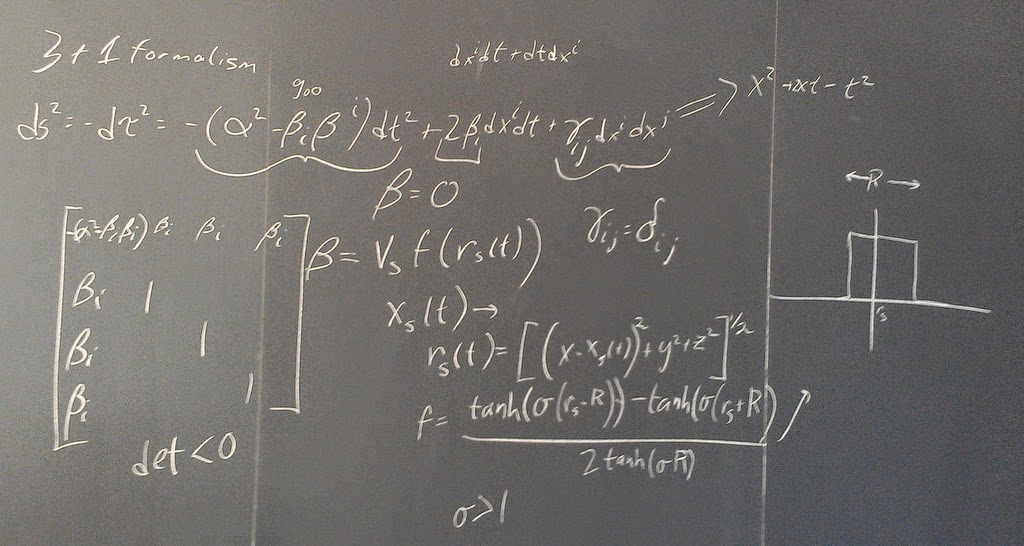 3+1 formalism
dxⁱdt + dtdxⁱ
g₀₀
ds² = -dτ² = -(α² - βᵢβⁱ)dt² + 2βᵢdxⁱdt + γᵢⱼdxⁱdxʲ => x² + 2xt - t²
β = 0
γᵢⱼ = δᵢⱼ
R
-(α²-βᵢβᵢ) βᵢ βᵢ βᵢ
βᵢ 1
βᵢ 1
βᵢ 1
det < 0
β = Vₛ f(rₛ(t))
xₛ(t) →
rₛ(t) = [(x - xₛ(t))² + y² + z²]^{1/2}
f = (tanh(σ(rₛ-R)) - tanh(σ(rₛ+R))) / 2tanh(σR)
σ > 1
rₛ